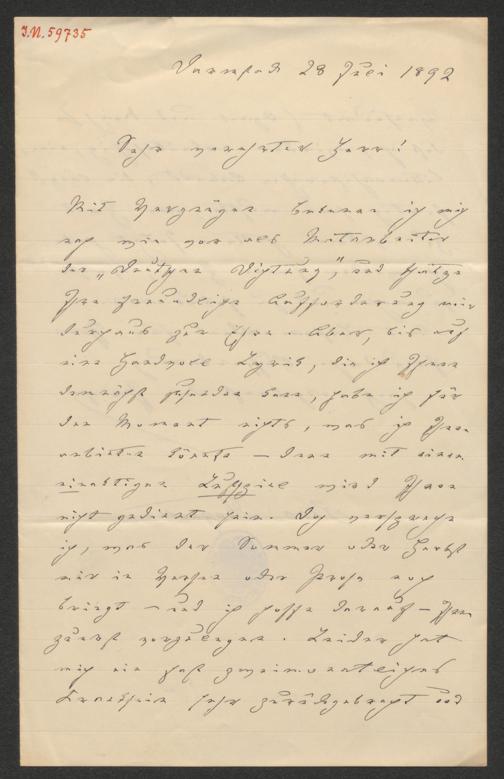 I.N. 59735
Darmstadt 28 Juli 1892
Sehr verehrter Herr!
Mit Vergnügen bekenne ich mich
nach wie vor als Mitarbeiter
der „Deutschen Dichtung“, und schätze
Ihre freundliche Aufforderung mir
durchaus zur Ehre. Aber, bis auf
eine Handvoll Lyrik, die ich Ihnen
demnächst zusenden kann, habe ich für
den Moment nichts, was ich Ihnen
anbieten könnte – denn mit einem
einaktigen Lustspiel wird Ihnen
nicht gedient sein. Doch verspreche
ich, was der Sommer oder Herbst
mir in Versen oder Prosa noch
bringt – und ich hoffe darauf – Ihnen
zuerst vorzulegen. Leider hat
mich ein fast zweimonatliches
Kranksein sehr zurückgebracht und